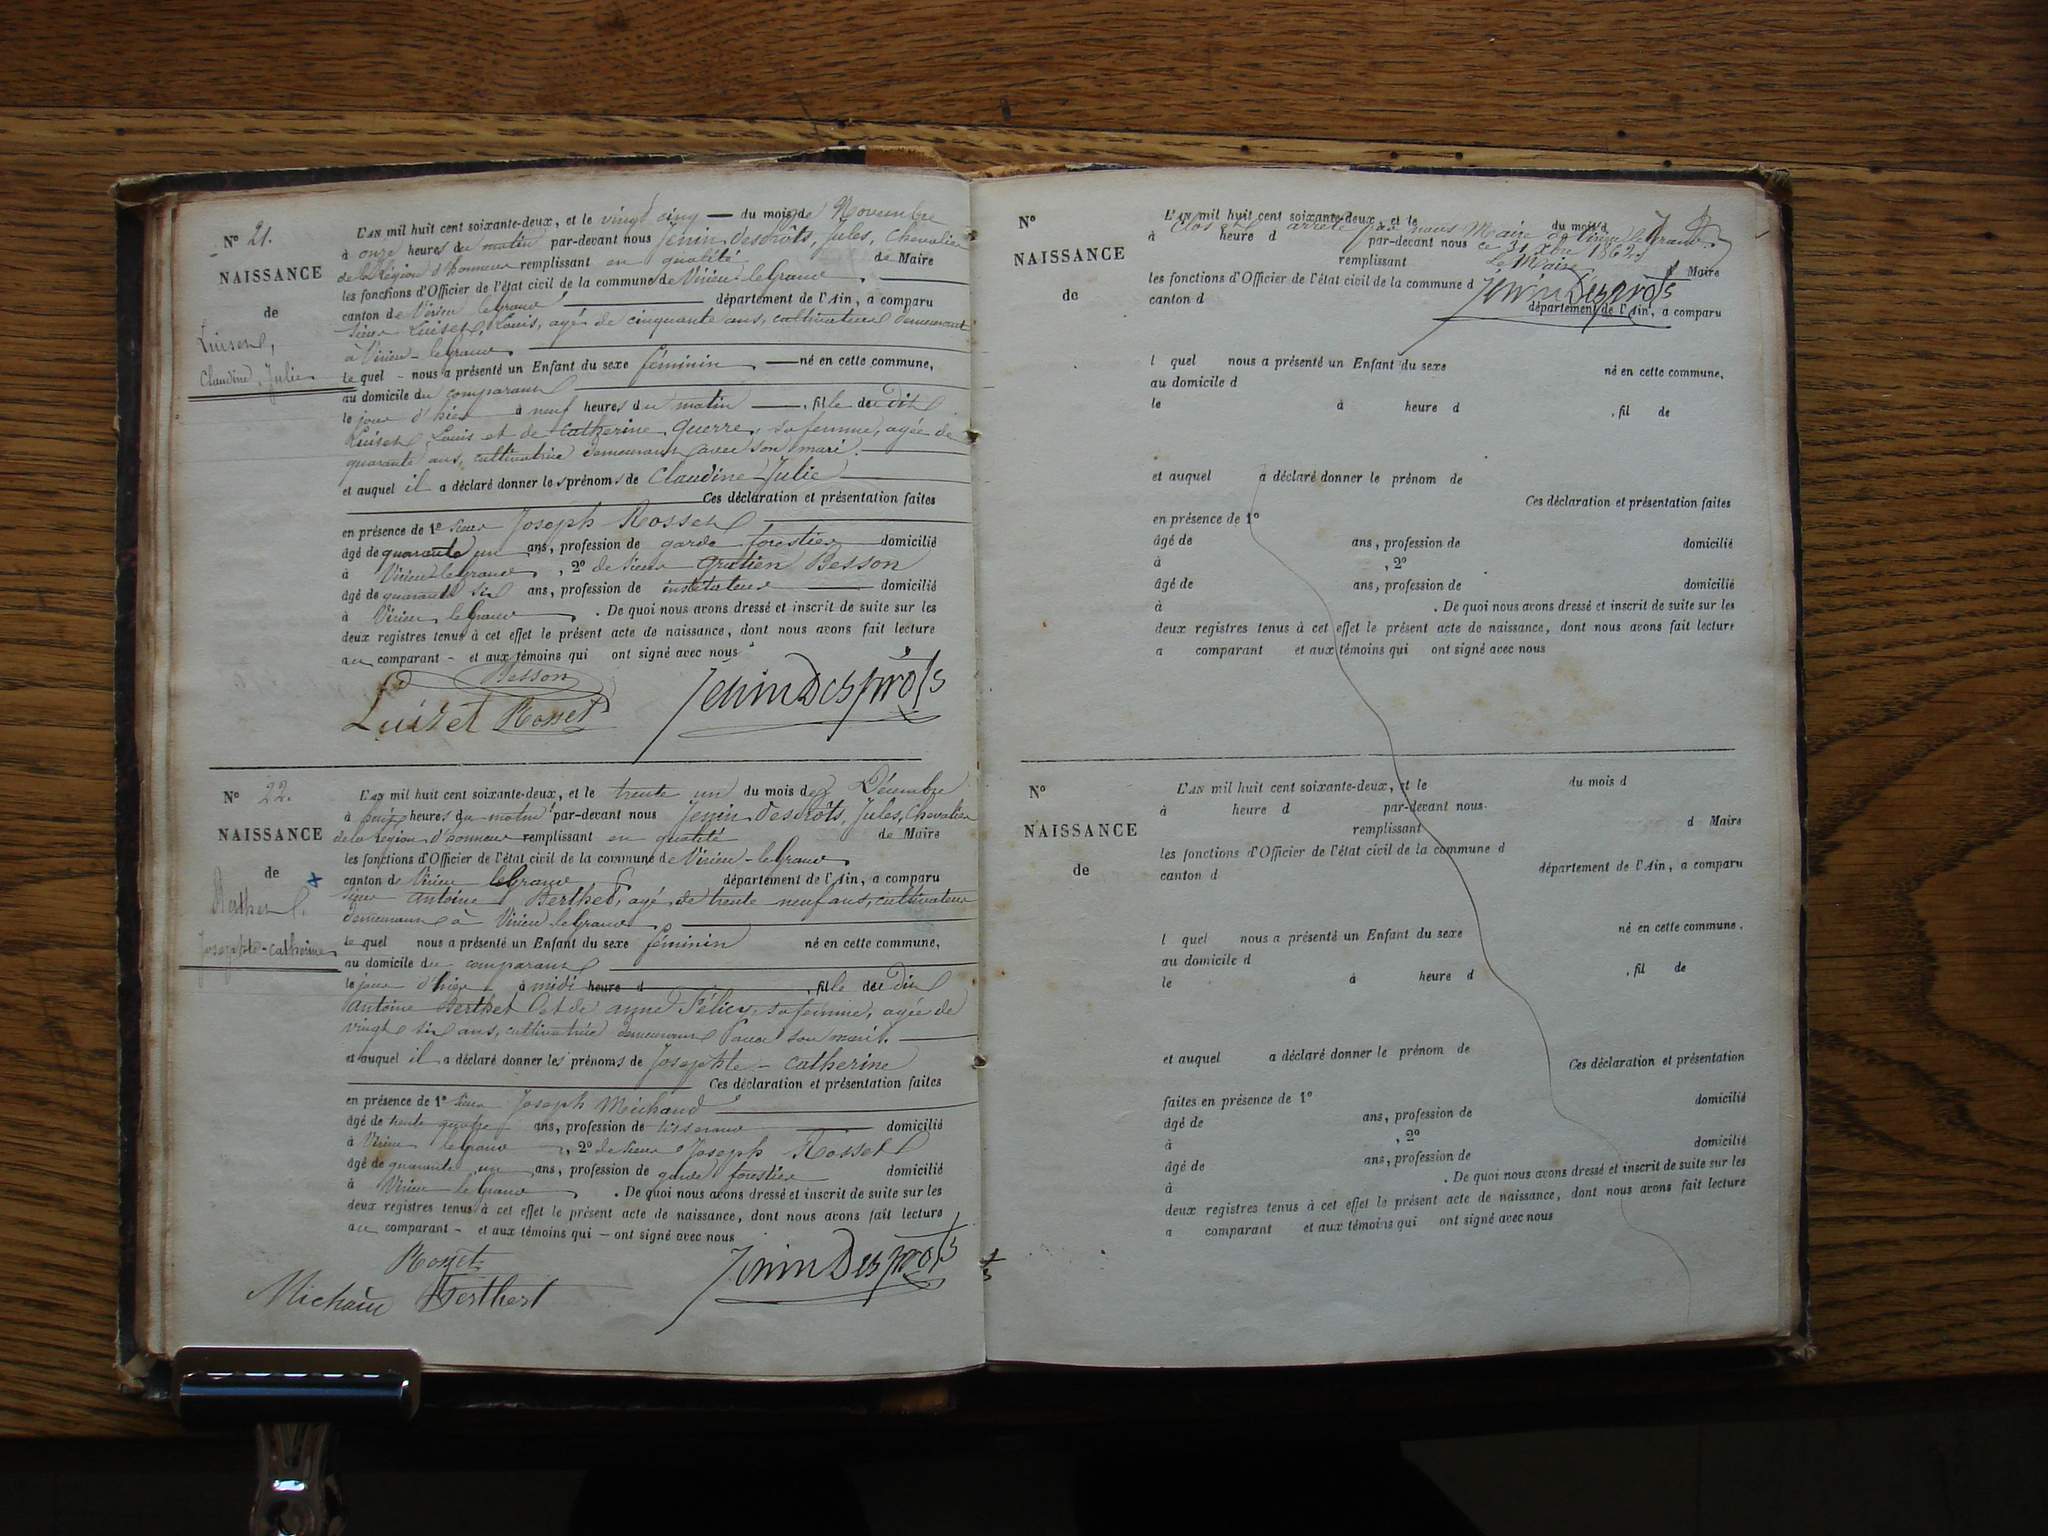 N° 21.
NAISSANCE
de
Luiset,
Claudine, Julie
L'AN mil huit cent soixante-deux, et le vingt cinq du mois de Novembre
à onze heures du matin par-devant nous Jenin Desprôts, Jules, Chevalier
de la Légion d'honneur remplissant en qualité de Maire
les fonctions d'Officier de l'état civil de la commune de Virieu-le Grand
canton de Virieu le Grand département de l'Ain, a comparu
sieur Luiset, Louis, agé de cinquante ans, cultivateur demeurant
à Virieu-le Grand
le quel - nous a présenté un Enfant du sexe féminin né en cette commune,
au domicile du comparant
le jour d'hier à neuf heures du matin , fille du dit
Luiset Louis et de Catherine Guerre, sa femme, agée de
quarante ans, cultivatrice demeurant avec son mari.
et auquel il a déclaré donner les prénoms de Claudine Julie
Ces déclaration et présentation faites
en présence de 1° sieur Joseph Rosset
âgé de quarante un ans, profession de garde forestier domicilié
à Virieu-le Grand , 2° de sieur Gratien Besson
âgé de quarante six ans, profession de instituteur domicilié
à Virieu le Grand . De quoi nous avons dressé et inscrit de suite sur les
deux registres tenus à cet effet le présent acte de naissance, dont nous avons fait lecture
au comparant - et aux témoins qui ont signé avec nous
Besson
Luizet Rosset JeninDesprôts
N° 22.
NAISSANCE
de
Berthet.
Josephte-Catherine
L'AN mil huit cent soixante-deux, et le trente un du mois de Décembre
à heures du matin par-devant nous Jenin Desprôts, Jules, Chevalier
de la Légion d'honneur remplissant en qualité de Maire
les fonctions d'Officier de l'état civil de la commune de Virieu-le Grand
canton de Virieu le Grand département de l'Ain, a comparu
sieur Antoine Berthet, agé de trente neuf ans, cultivateur
demeurant à Virieu le Grand
le quel nous a présenté un Enfant du sexe féminin né en cette commune,
au domicile du comparant
le jour d'hier à midi heure d , fille du Dit
Antoine Berthet et de anne Félicy, sa femme, agée de
vingt six ans, cultivatrice demeurant avec son mari.
et auquel il a déclaré donner les prénoms de Josephte-Catherine
Ces déclaration et présentation faites
en présence de 1° sieur Joseph Michaud
âgé de trente quatre ans, profession de tisserand domicilié
à Virieu le grand , 2° de sieur Joseph Rosset
âgé de quarante un ans, profession de garde forestier domicilié
à Virieu le Grand . De quoi nous avons dressé et inscrit de suite sur les
deux registres tenus à cet effet le présent acte de naissance, dont nous avons fait lecture
au comparant - et aux témoins qui - ont signé avec nous
Rosset JeninDesprôts
Michaud Berthet
N°
NAISSANCE
de
L'AN mil huit cent soixante-deux, et le du mois d
Clos et arrêté par nous Maire de Virieu le Grand
à heure d par-devant nous ce 31 Xbre 1862
remplissant Le Maire d Maire
les fonctions d'Officier de l'état civil de la commune d JeninDesprôts
canton d département de l'Ain, a comparu
l quel nous a présenté un Enfant du sexe né en cette commune,
au domicile d
le à heure d , fil de
et auquel a déclaré donner le prénom de
Ces déclaration et présentation faites
en présence de 1°
âgé de ans, profession de domicilié
à , 2°
âgé de ans, profession de domicilié
à . De quoi nous avons dressé et inscrit de suite sur les
deux registres tenus à cet effet le présent acte de naissance, dont nous avons fait lecture
a comparant et aux témoins qui ont signé avec nous
N°
NAISSANCE
de
L'AN mil huit cent soixante-deux, et le du mois d
à heure d par-devant nous
remplissant d Maire
les fonctions d'Officier de l'état civil de la commune d
canton d département de l'Ain, a comparu
l quel nous a présenté un Enfant du sexe né en cette commune,
au domicile d
le à heure d , fil de
et auquel a déclaré donner le prénom de
Ces déclaration et présentation
faites en présence de 1° domicilié
âgé de ans, profession de
à , 2° domicilié
âgé de ans, profession de
à . De quoi nous avons dressé et inscrit de suite sur les
deux registres tenus à cet effet le présent acte de naissance, dont nous avons fait lecture
a comparant et aux témoins qui ont signé avec nous